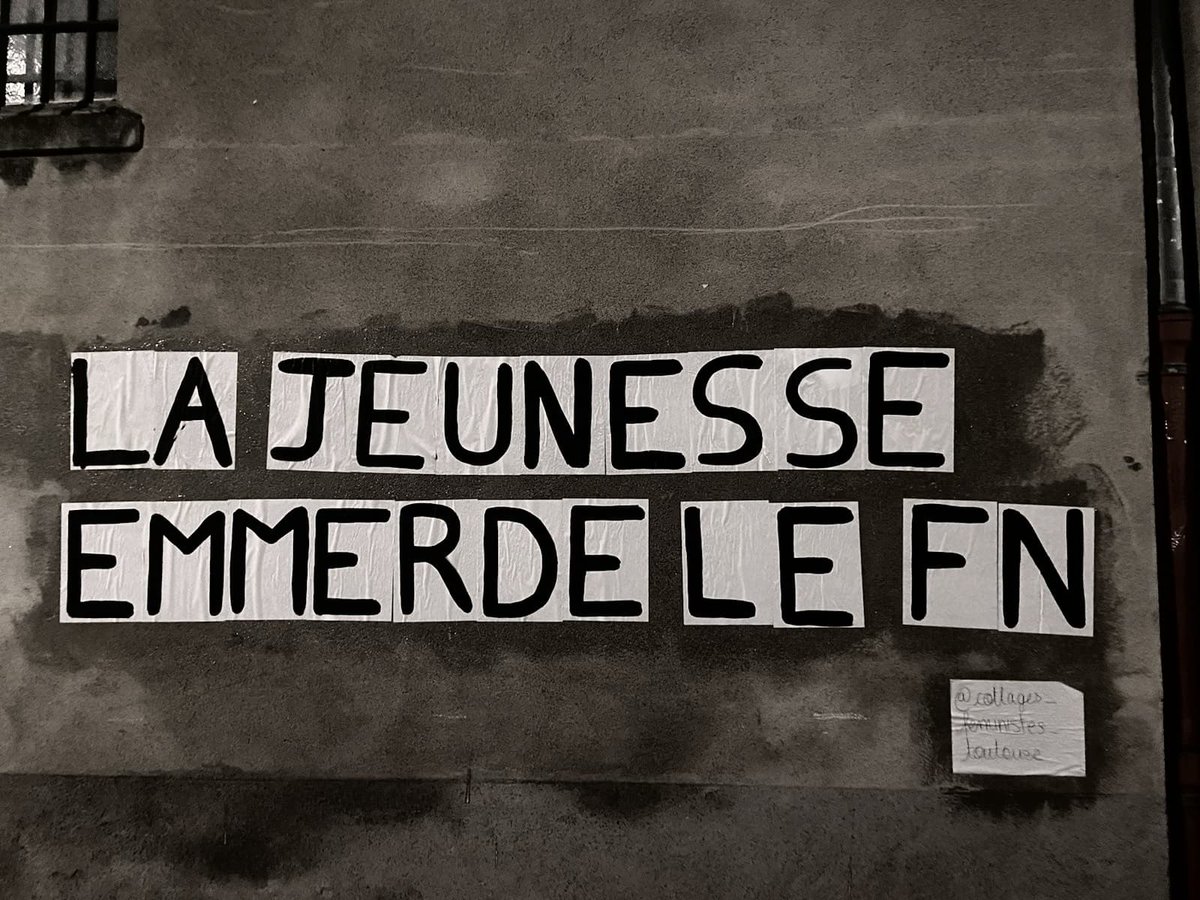 LA JEUNESSE
EMMERDE LE FN
@collages_
feministes_
toulouse